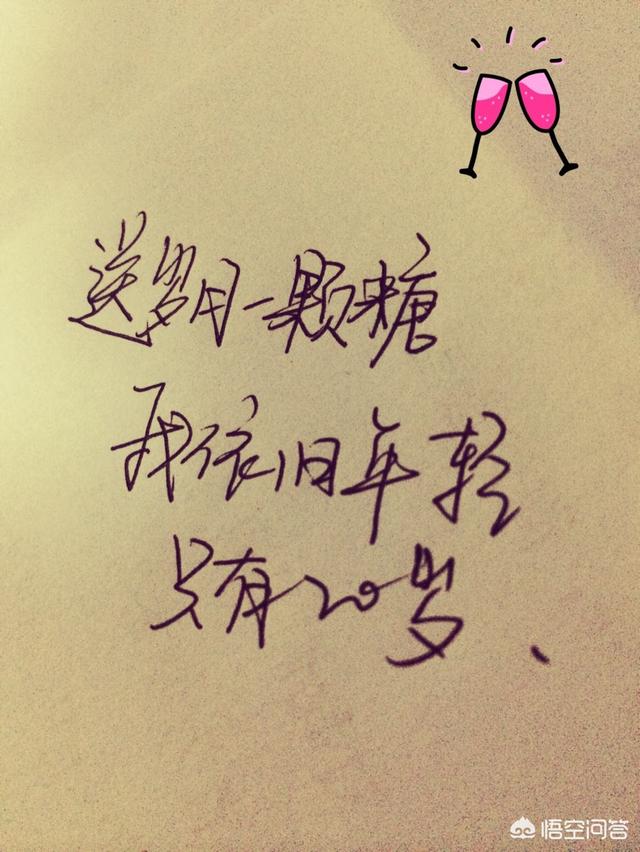 送岁月一颗糖
我依旧年轻
只有20岁、
悟空问答